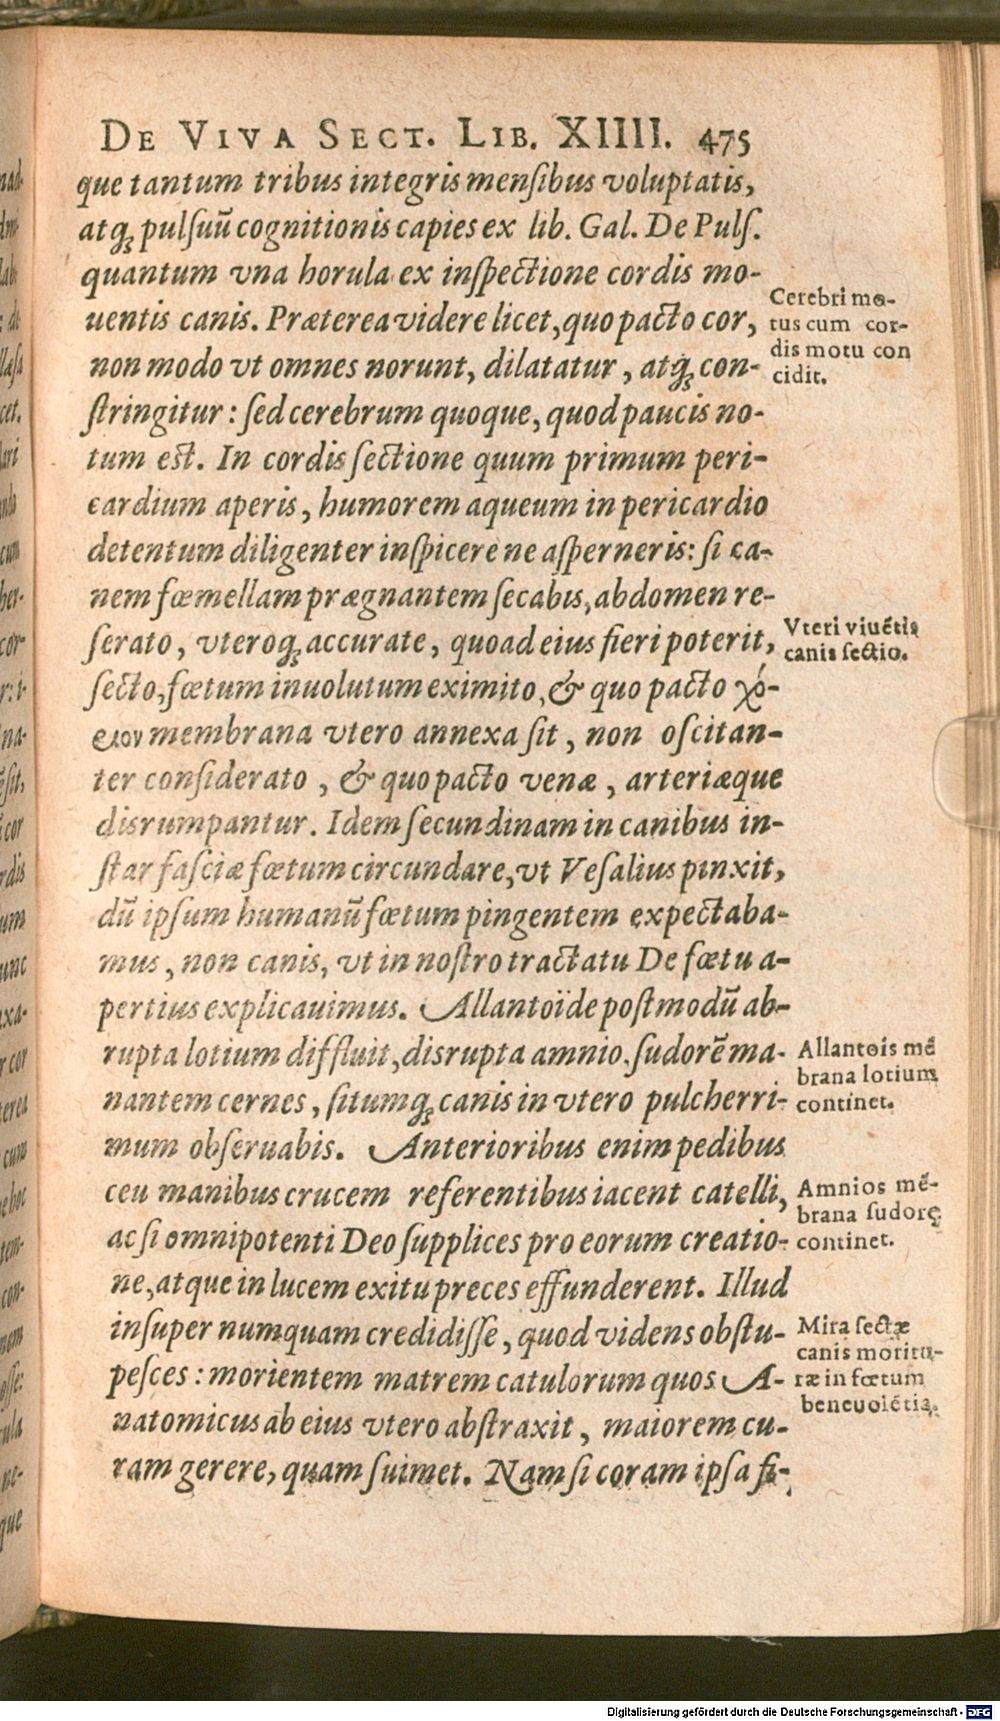 DE VIVA SECT. LIB. XIIII. 475
que tantum tribus integris mensibus voluptatis,
atq́; pulsuũ cognitionis capies ex lib. Gal. De Puls.
quantum vna horula ex inspectione cordis mo-
uentis canis. Præterea videre licet, quo pacto cor,
non modo vt omnes norunt, dilatatur, atq́; con-
stringitur: sed cerebrum quoque, quod paucis no-
tum est. In cordis sectione quum primum peri-
cardium aperis, humorem aqueum in pericardio
detentum diligenter inspicere ne asperneris: si ca-
nem fœmellam prægnantem secabis, abdomen re-
serato, vteroq́; accurate, quoad eius fieri poterit,
secto, fœtum inuolutum eximito, & quo pacto χό-
ειον membrana vtero annexa sit, non oscitan-
ter considerato, & quo pacto venæ, arteriæque
disrumpantur. Idem secundinam in canibus in-
star fasciæ fœtum circundare, vt Vesalius pinxit,
dũ ipsum humanũ fœtum pingentem expectaba-
mus, non canis, vt in nostro tractatu De fœtu a-
pertius explicauimus. Allantoïde postmodũ ab-
rupta lotium diffluit, disrupta amnio. sudorẽ ma-
nantem cernes, situmq́; canis in vtero pulcherri-
mum obseruabis. Anterioribus enim pedibus
ceu manibus crucem referentibus iacent catelli,
ac si omnipotenti Deo supplices pro eorum creatio-
ne, atque in lucem exitu preces effunderent. Illud
insuper numquam credidisse, quod videns obstu-
pesces: morientem matrem catulorum quos A-
natomicus ab eius vtero abstraxit, maiorem cu-
ram gerere, quam suimet. Nam si coram ipsa fi-
Cerebri mo-
tus cum cor-
dis motu con
cidit.
Vteri viuẽtis
canis sectio.
Allantois mẽ
brana lotium
continet.
Amnios mẽ-
brana sudorẽ
continet.
Mira sectæ
canis moritu-
ræ in fœtum
beneuolẽtia.
Digitalisierung gefördert durch die Deutsche Forschungsgemeinschaft - DFG